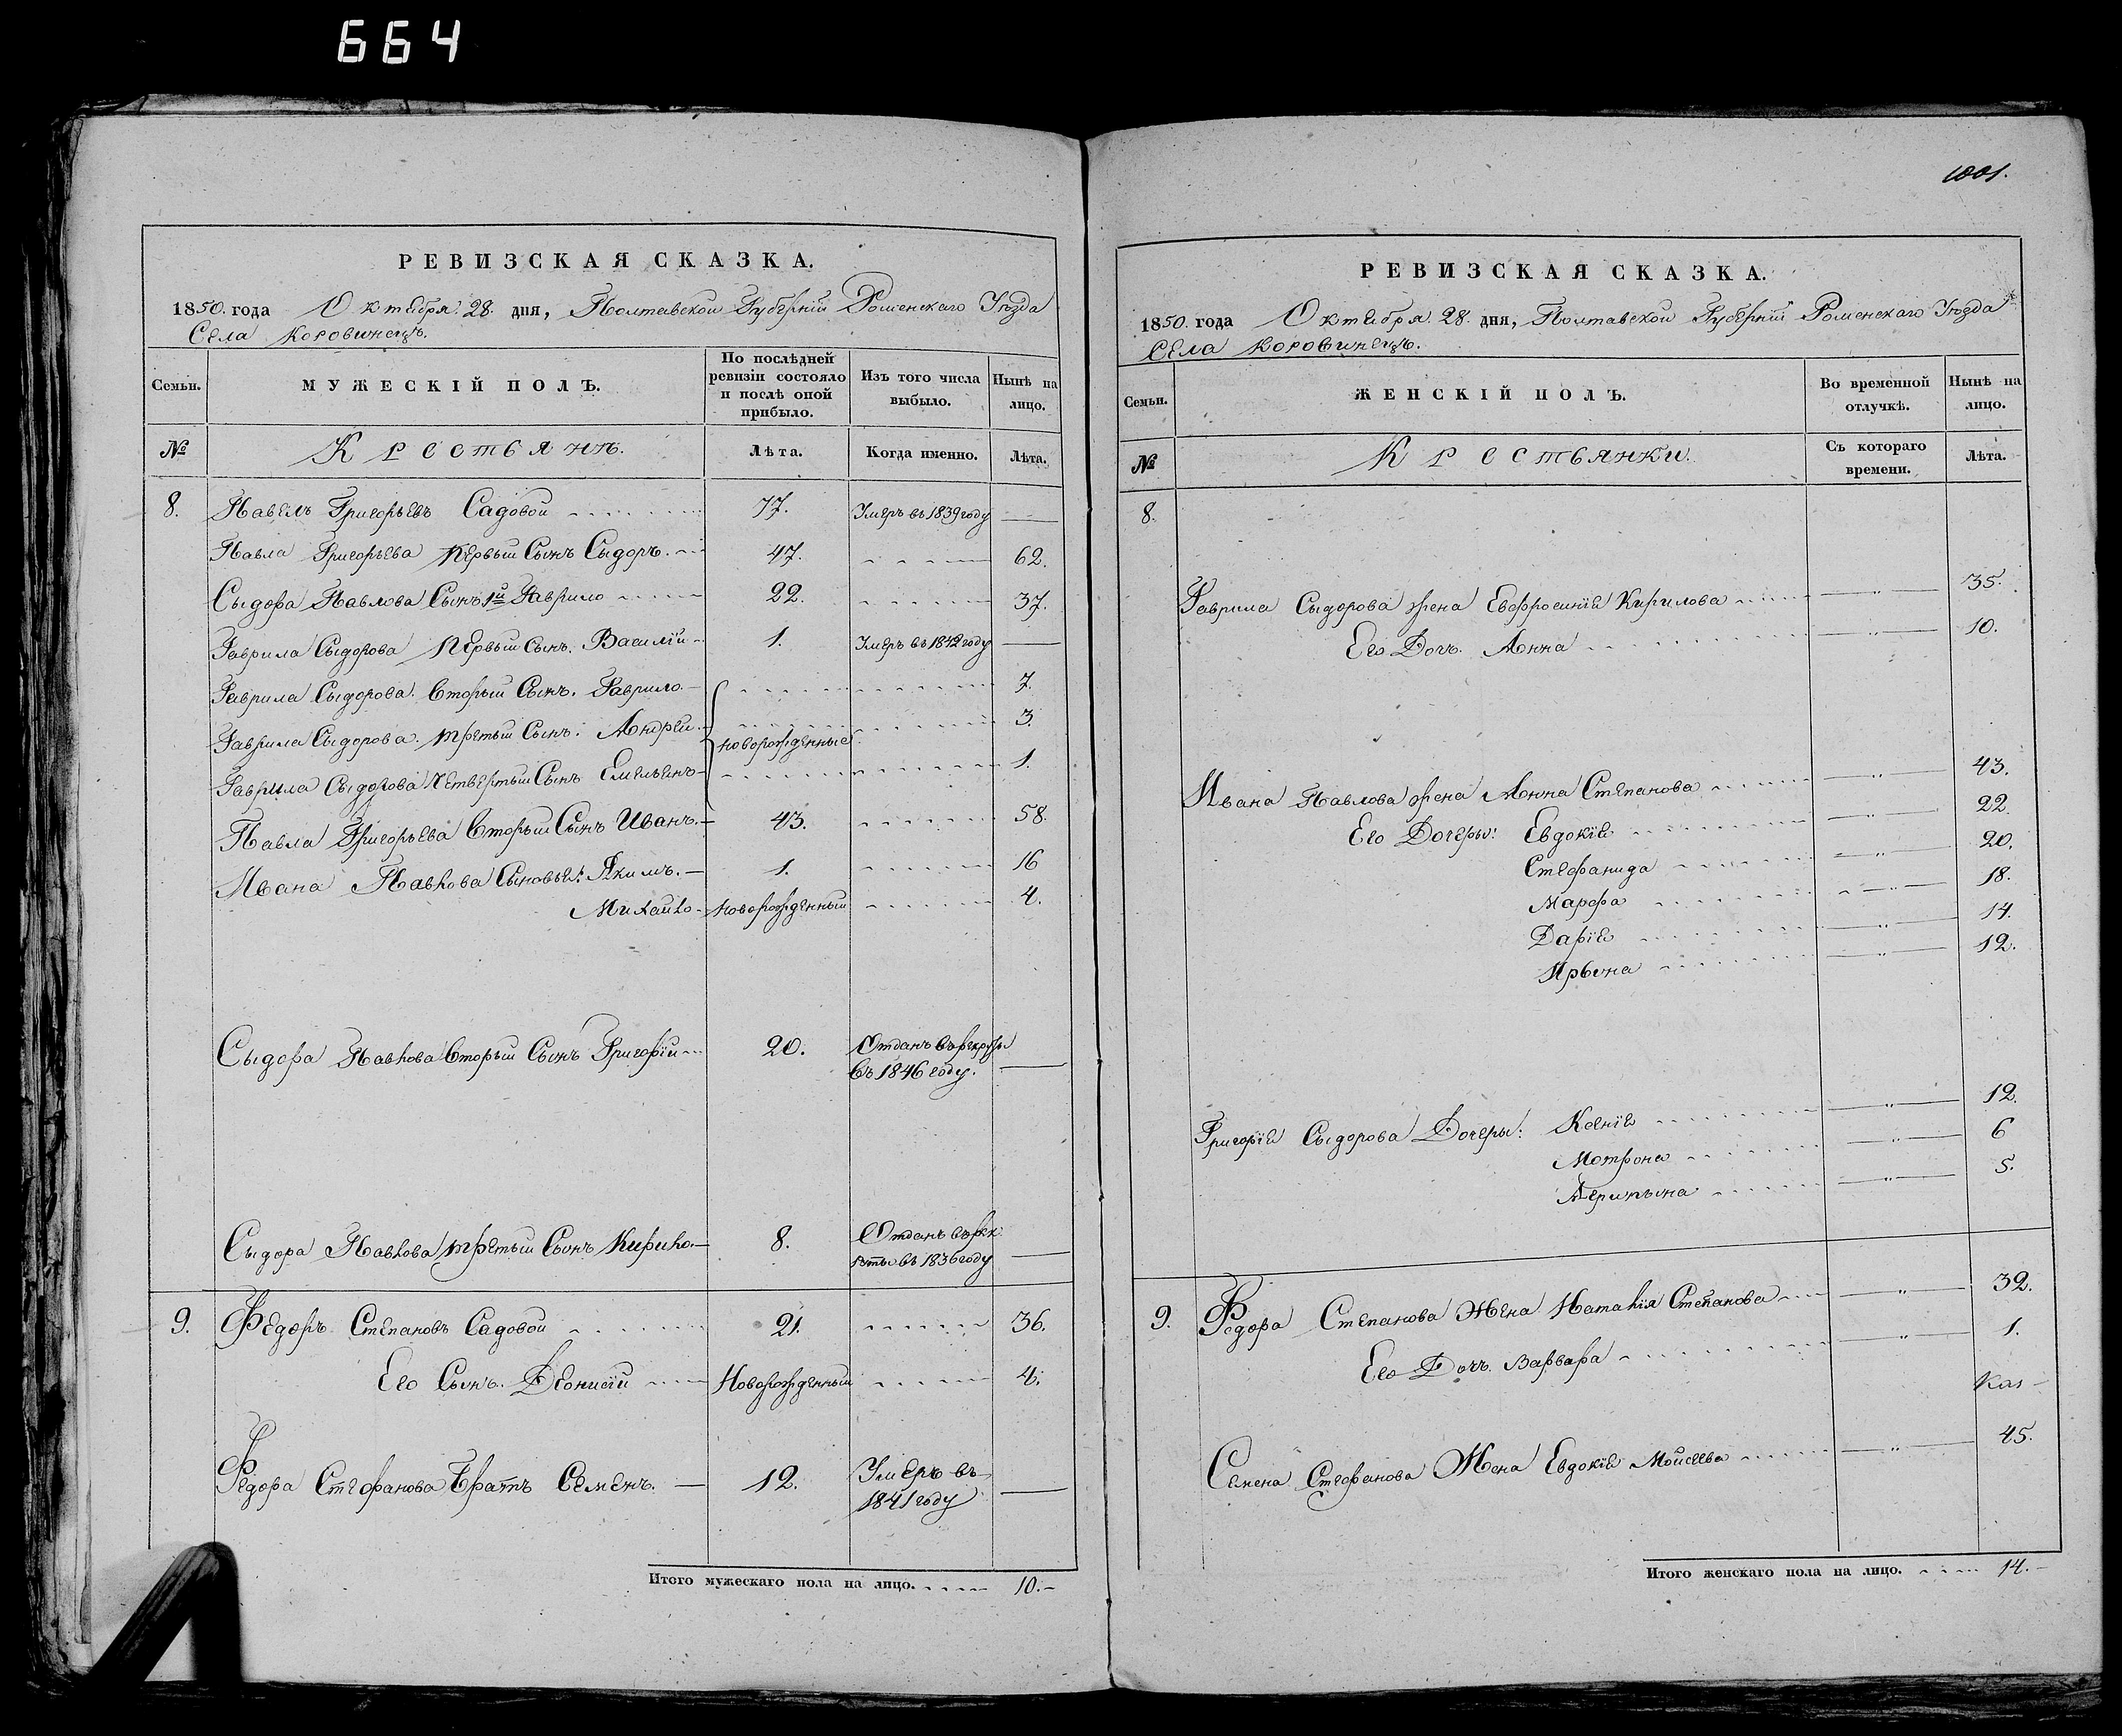 664
РЕВИЗСКАЯ СКАЗКА.
1850. года Октября 28. дня, Полтавской Губерніи Роменскаго Уѣзда
Села Коровинецъ.
Семьи.
МУЖЕСКІЙ ПОЛЪ.
По послѣдней ревизіи состояло и послѣ оной прибыло.
Изъ того числа выбыло.
Нынѣ на лицо.
№
Крестьянъ.
Лѣта.
Когда именно.
Лѣта.
8. Павелъ Григорьевъ Садовой 77. Умеръ въ 1839 году
Павла Григорьева первый Сынъ Сыдоръ. 47. 62.
Сыдора Павлова Сынъ 1й Гаврило 22. 37.
Гаврила Сыдорова Первый Сынъ. Василій 1. Умеръ въ 1842 году
Гаврила Сыдорова. Вторый Сынъ. Гаврило. 7.
Гаврила Сыдорова. третьій Сынъ. Андрей. новорожденные 3.
Гаврила Сыдорова Четвертый Сынъ Емельянъ 1.
Павла Григорьева Вторый Сынъ Иванъ. 43. 58.
Ивана Павлова Сыновья: Якимъ. 1. 16
Михайло новорожденный 4.
Сыдора Павлова Вторый Сынъ Григорій 20. Отданъ въ рекруты
въ 1846 году.
Сыдора Павлова третьій Сынъ Кирило 8. Отданъ въ рек
руты въ 1836 году
9. Федоръ Степановъ Садовой 21. 36.
Его Сынъ. Деонисій Новорожденный 4.
Федора Стефанова Братъ Семенъ. 12. Умеръ въ
1841 году
Итого мужескаго пола на лицо. 10.
1001.
РЕВИЗСКАЯ СКАЗКА.
1850. года Октября 28. дня, Полтавской Губерніи Роменскаго Уѣзда
Села Коровинецъ.
Семьи.
ЖЕНСКІЙ ПОЛЪ.
Во временной отлучкѣ.
Нынѣ на лицо.
№
Крестьянки.
Съ котораго времени.
Лѣта.
8.
Гаврила Сыдорова жена Евфросинія Кирилова 35.
Его Дочь Анна 10.
Ивана Павлова жена Анна Степанова 43.
Его Дочери: Евдокія 22
Стефанида 20.
Марфа 18.
Дарія 14.
Ирына 12.
Григорія Сыдорова Дочери: Ксенія 12.
Мотрона 6
5.
9. Федора Степанова Жена Наталія Степанова 32.
Его Дочь Варвара 1.
Семена Стефанова Жена Евдокія Моисеева 45.
Итого женскаго пола на лицо. 14.